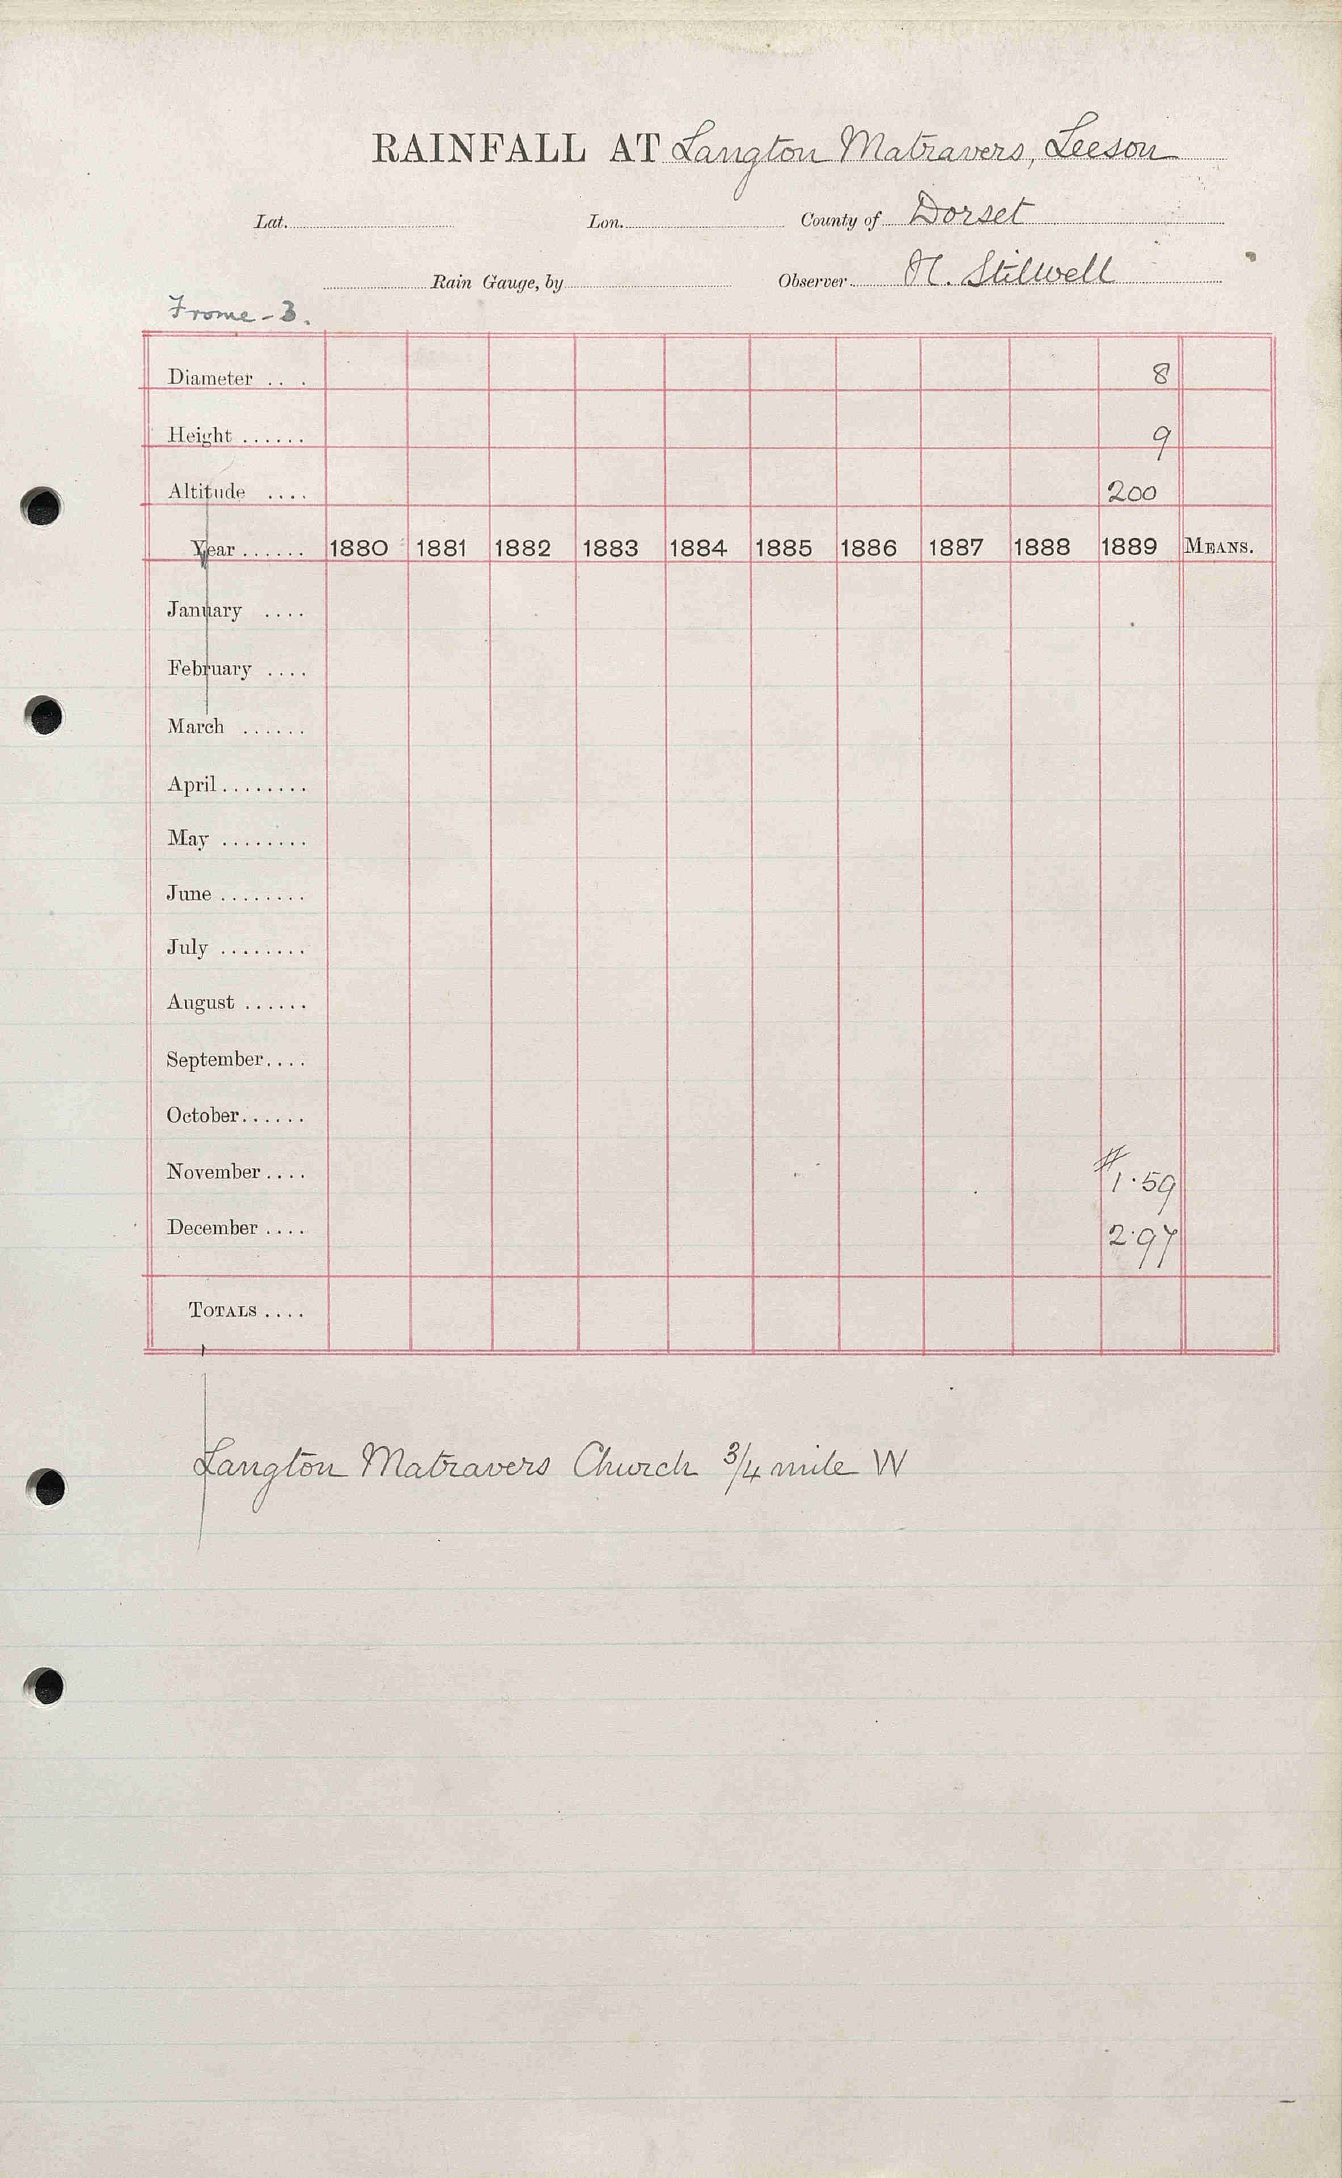 RAINFALL AT Langton Matravers, Leeson
Lat. Lon. County of Dorset
Rain Gauge, by Observer H. Stilwell
Frome - 3.
Diameter . . . 8
Height ...... 9
Altitude .... 200
Year ...... 1880 1881 1882 1883 1884 1885 1886 1887 1888 1889 MEANS.
January ....
February ....
March ......
April ........
May ........
June ........
July ........
August ......
September ....
October ......
November .... # 1.59
December .... 2.97
TOTALS ....
Langton Matravers Church 3/4 mile W